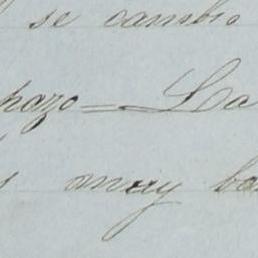 se cambio
pazo = La
muy ba